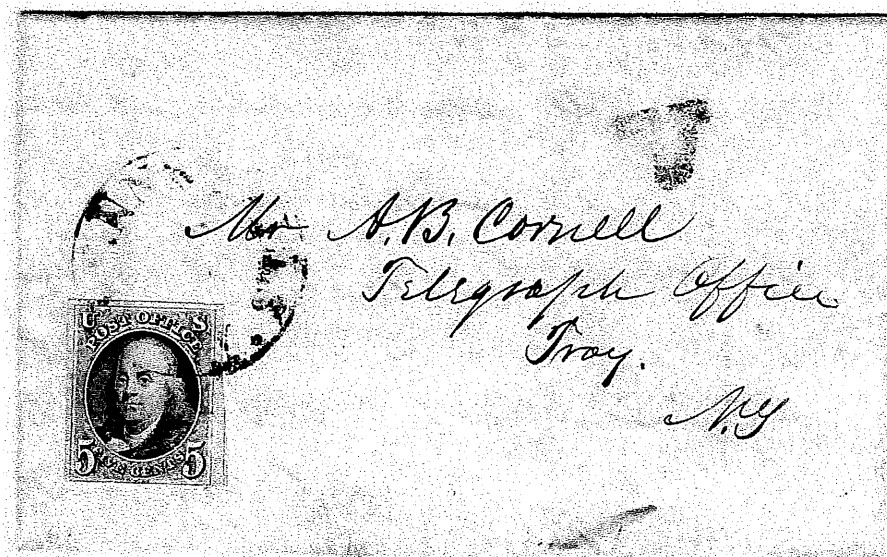 Mr A.B. Cornell
Telegraph Office
Troy.
N.Y
U S
POST OFFICE
5 FIVE CENTS 5